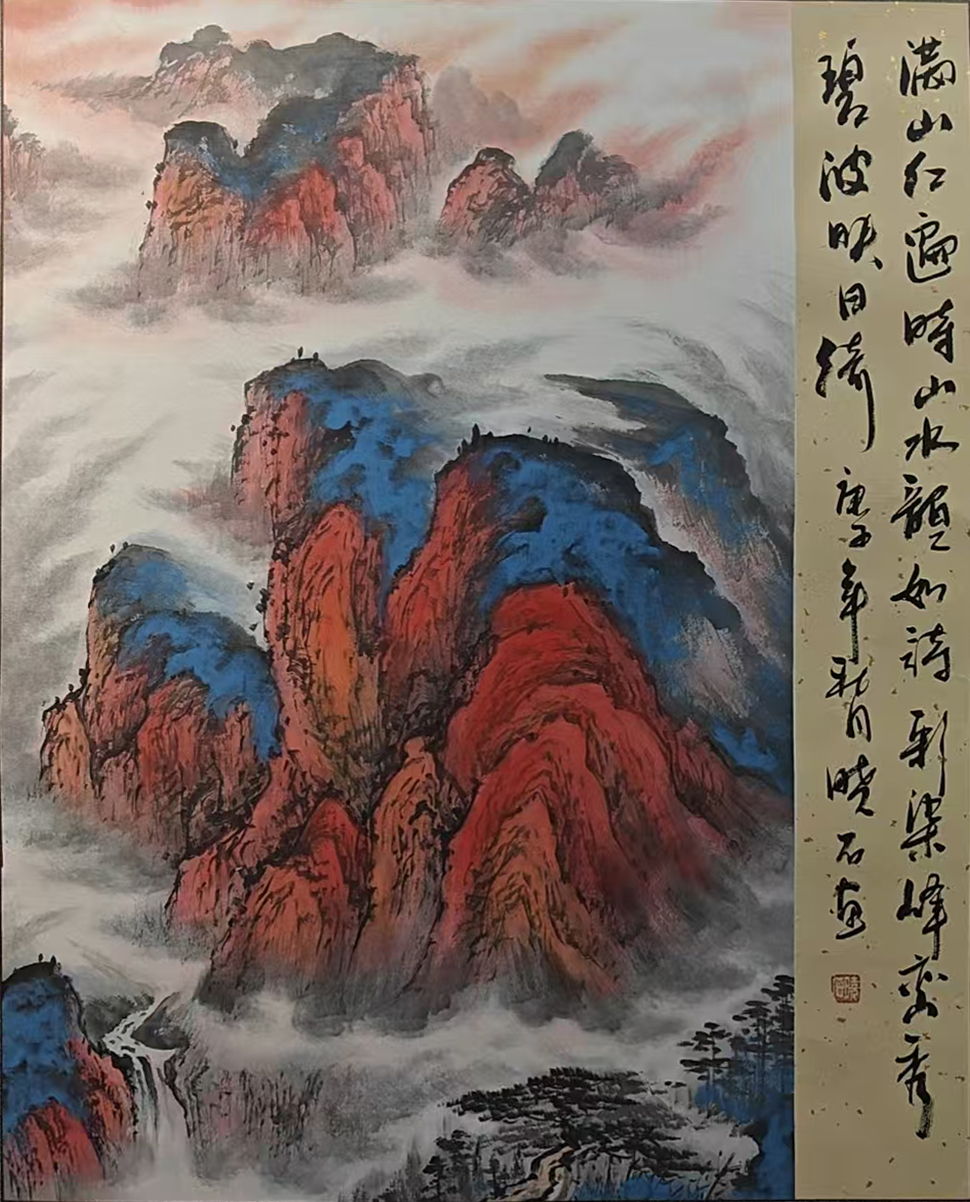 满山红遍時山水韻如诗彩染峰峦秀
碧波映日绮 庚子年秋月晓石画